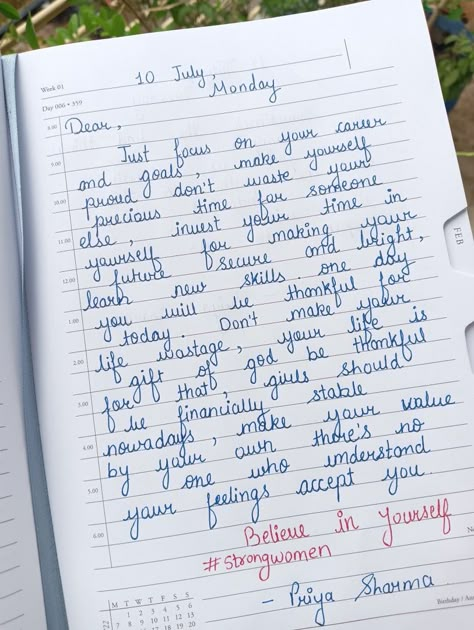 Week 01
10 July,
Monday
Day 006 • 359
8.00
Dear,
Just focus on your career
9.00
and goals, make yourself
proud don't waste your
10.00
precious time for someone
else, invest your time in
11.00
yourself for making your
future secure and bright,
12.00
learn new skills. one day
you will be thankful for
1.00
today. Don't make your
life wastage, your life is
2.00
gift of god be thankful
for that, girls should
3.00
be financially stable
nowadays, make your value
4.00
by your own there's no
one who understand
5.00
your feelings accept you.
6.00
Believe in Yourself
#strongwomen
- Priya Sharma
FEB
M T W T F S S
1 2 3 4 5 6
7 8 9 10 11 12 13
Birthday / An